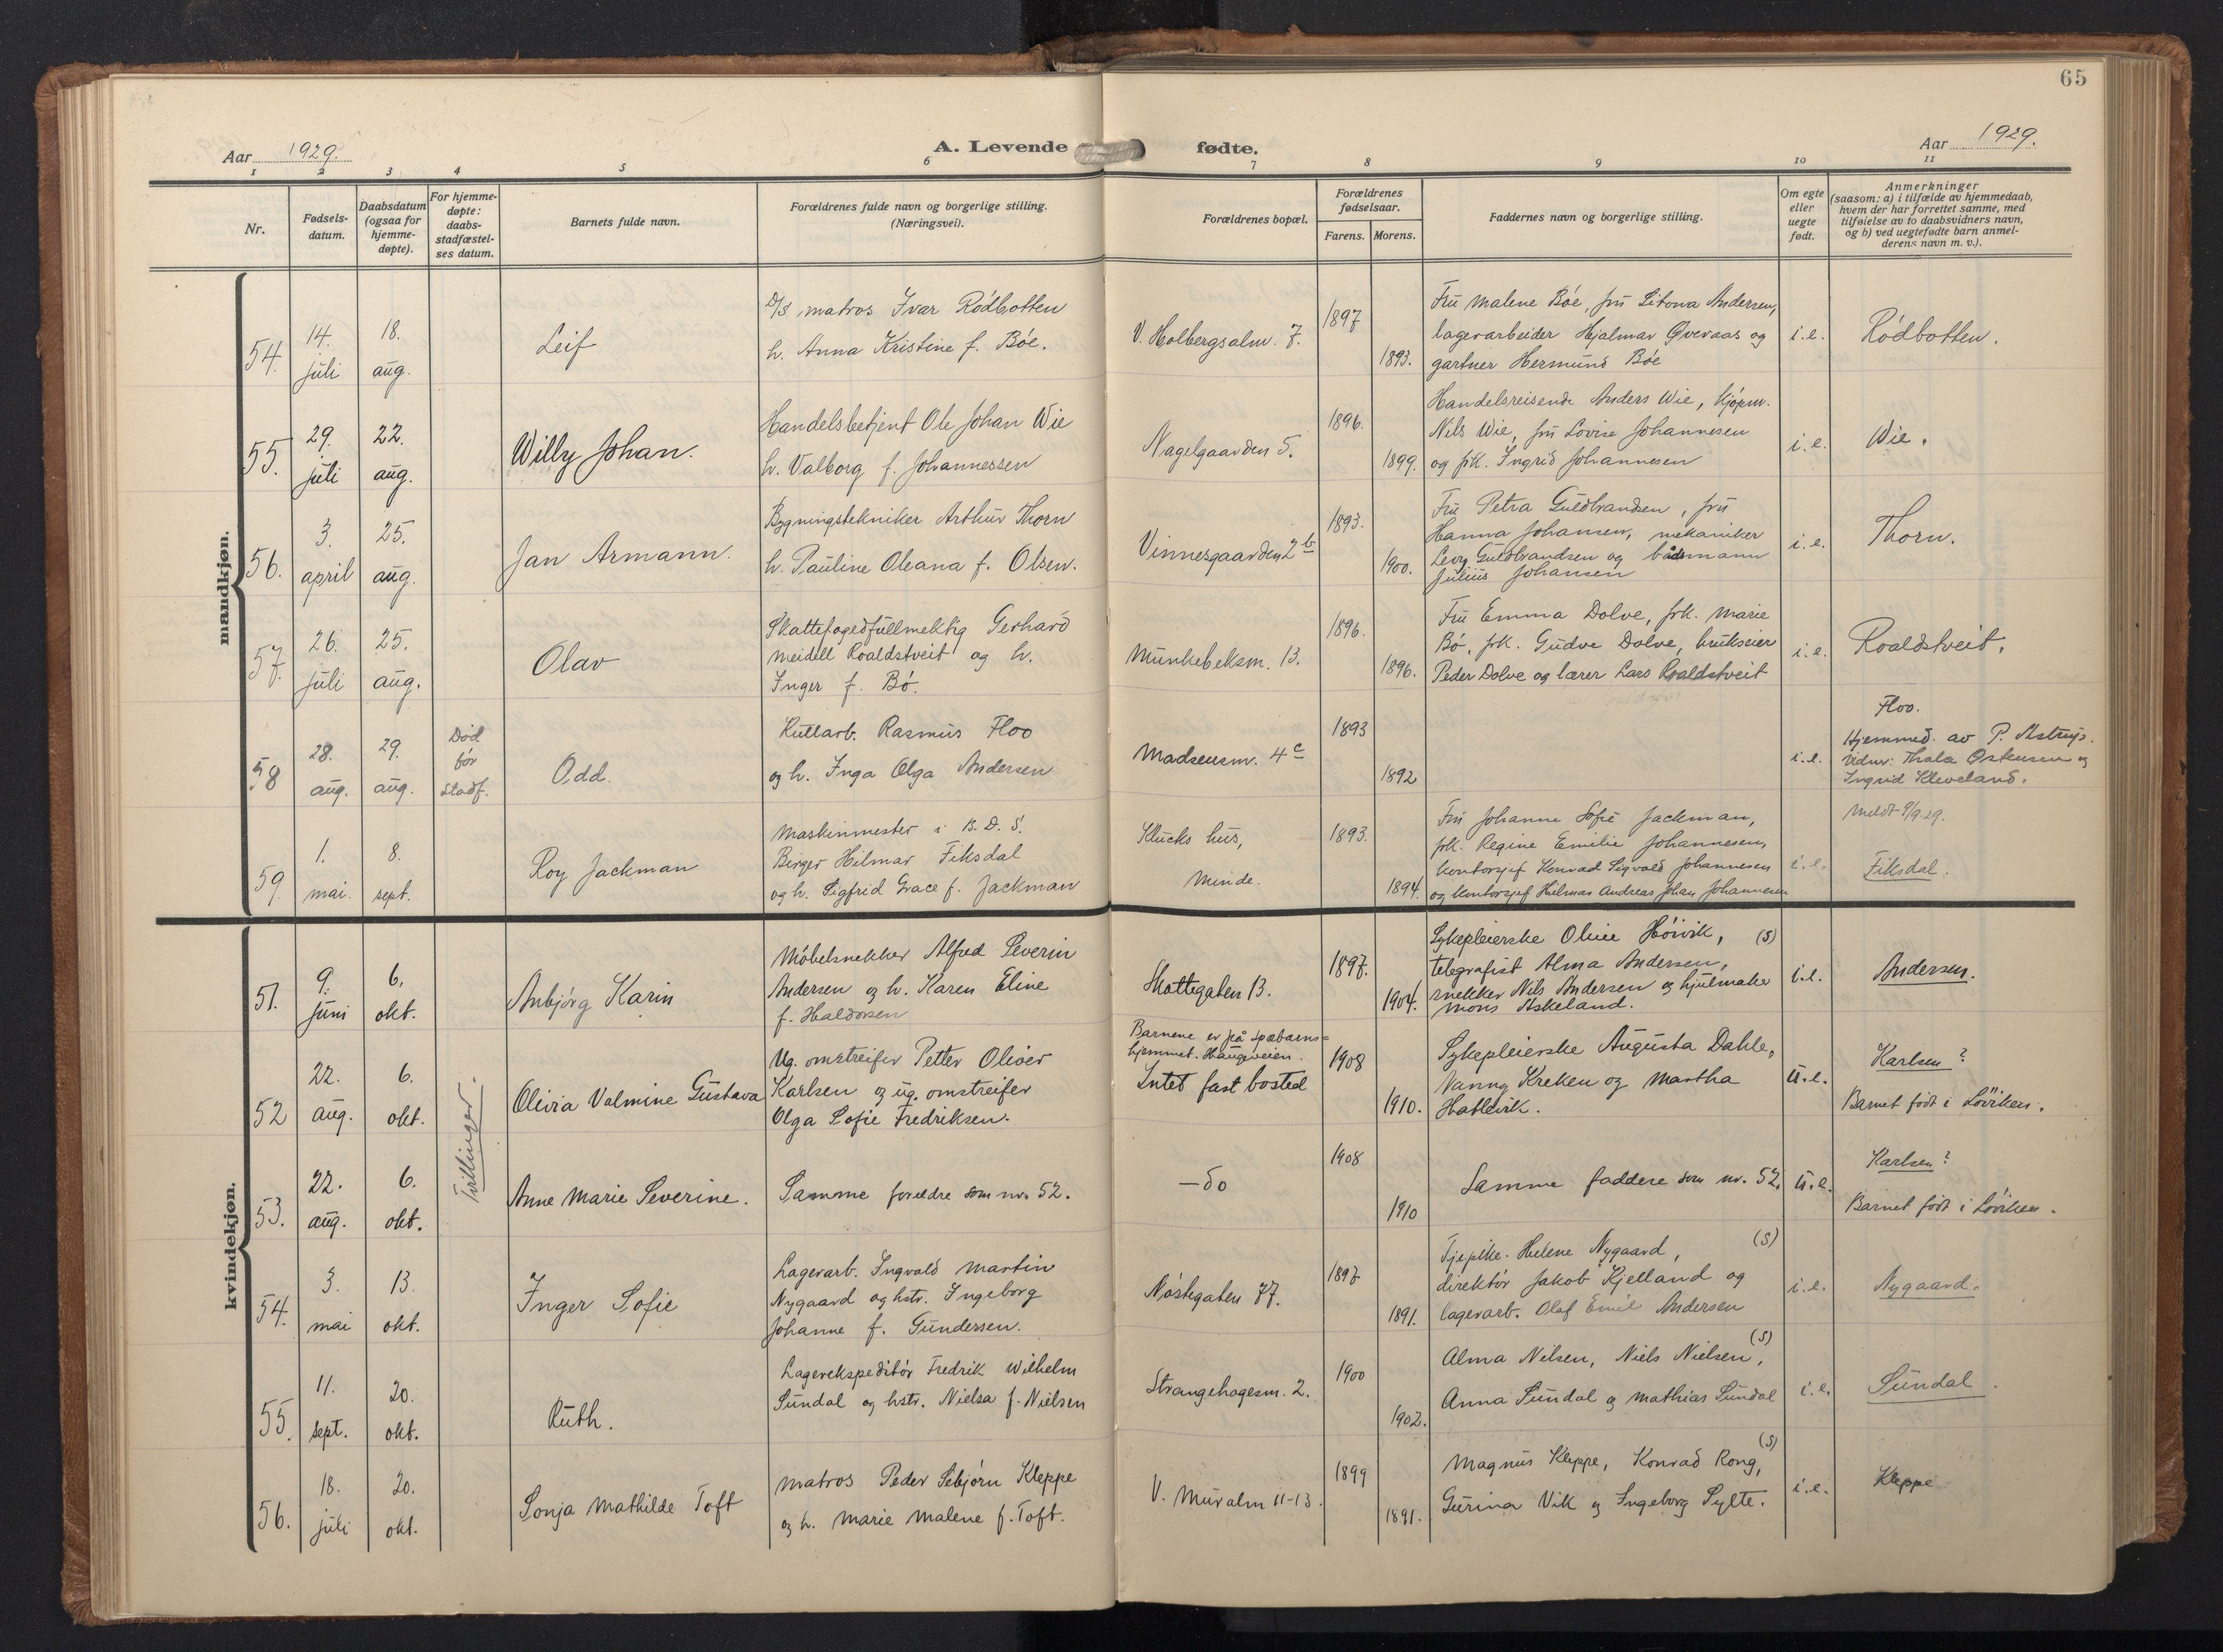 65
Aar 1929.
A. Levende fødte.
Aar 1929.
1 2 3 4 5 6 7 8 9 10 11
Nr.
Fødsels-
datum.
Daabsdatum
(ogsaa for
hjemme-
døpte).
For hjemme-
døpte:
daabs-
stadfæstel-
ses datum.
Barnets fulde navn.
Forældrenes fulde navn og borgerlige stilling.
(Næringsvei).
Forældrenes bopæl.
Forældrenes
fødselsaar.
Farens. Morens.
Faddernes navn og borgerlige stilling.
Om egte
eller
uegte
født.
Anmerkninger
(saasom: a) i tilfælde av hjemmedaab,
hvem der har forrettet samme, med
tilføielse av to daabsvidners navn,
og b) ved uegtefødte barn anmel-
derens navn m. v.).
mandkjøn.
54.
14.
juli
18.
aug.
Leif
D/S. matros Ivar Rødbotten
h. Anna Kristine f. Bøe.
V. Holbergsalm. 7.
1897
1893.
Fru Malene Bøe, fru Andersen,
lagerarbeider Hjalmar Øveraas og
gartner Hermund Bøe
i.e.
Rødbotten.
55.
29.
juli
22.
aug.
Willy Johan.
Handelsbetjent Ole Johan Wie
h. Valborg f. Johannessen
Nagelgaarden 5.
1896.
1899.
Handelsreisende Anders Wie, kjøpm.
Nils Wie, fru Lovise Johannesen
og frk. Ingrid Johannesen
i.e.
Wie.
56.
3.
april
25.
aug.
Jan Armann.
Bygningstekniker Arthur Thorn
h. Pauline Oleana f. Olsen.
Vinnesgaarden 2b
1893.
1900.
Fru Petra Guldbrandsen, fru
Hanna Johansen, mekaniker
Georg Guldbrandsen og båtsmann
Julius Johansen
i.e.
Thorn.
57.
26.
juli
25.
aug.
Olav
Skattefogedfullmektig Gerhard
Meidell Roaldstveit og h.
Inger f. Bø.
Munkebeksm. 13.
1896.
1896.
Fru Emma Dolve, frk. Marie
Bø, frk. Gudve Dolve, brukseier
Peder Dolve og lærer Lars Roaldstveit
i.e.
Roaldstveit.
58
28.
aug.
29.
aug.
Død
før
stadf.
Odd.
Kullarb. Rasmus Floo
og h. Inga Olga Andersen
Madsensm. 4c
1893
1892
i.e.
Floo.
Hjemmed. av P. Astrup.
Vidner: Thala Ostensen og
Ingrid Kleveland.
Meldt 9/9.29.
59.
1.
mai.
8.
sept.
Roy Jackman
Maskinmester i B.D.S.
Birger Hilmar Fiksdal
og h. Sigfrid Grace f. Jackman
Klucks hus,
Minde.
1893.
1894.
Fru Johanne Sofie Jackman,
frk. Regine Emilie Johannesen,
kontorsjef Konrad Sigvald Johannesen
og kontorsjef Hilmar Andreas Johan Johannesen
i.e.
Fiksdal.
kvindekjøn.
51.
9.
juni
6.
okt.
Anbjørg Karin
Møbelsnekker Alfred Severin
Andersen og h. Karen Eline
f. Haldorsen
Skottegaten 13.
1897.
1904.
Sykepleierske Oline Høivik, (S)
telegrafist Alma Andersen,
snekker Nils Andersen og hjulmaker
Mons Askeland.
i.e.
Andersen.
52
22.
aug.
6.
okt.
Tvillinger.
Olivia Valmine Gustava
Ug. omstreifer Petter Oliver
Karlsen og ug. omstreifer
Olga Sofie Fredriksen.
Barnene er på spæbarns-
hjemmet. Haugeveien.
Intet fast bosted
1908
1910.
Sykepleierske Augusta Dahle,
Nanny Kreken og Martha
Hatlevik.
u.e.
Karlsen?
Barnet født i Løviken.
53.
22.
aug.
6.
okt.
Anne Marie Severine.
Samme forældre som nr. 52.
— do
1908
1910
Samme faddere som nr. 52.
u.e.
Karlsen?
Barnet født i Løviken.
54.
3.
mai
13.
okt.
Inger Sofie
Lagerarb. Ingvald Martin
Nygaard og hstr. Ingeborg
Johanne f. Gundersen.
Nøstegaten 77.
1897
1891.
Tjepike. Helene Nygaard, (S)
direktør Jakob Kjelland og
lagerarb. Olaf Emil Andersen
i.e.
Nygaard.
55.
11.
sept.
20.
okt.
Ruth.
Lagerekspeditør Fredrik Wilhelm
Sundal og hstr. Nielsa f. Nielsen
Strangehagesm. 2.
1900
1902.
Alma Nilsen, Niels Nielsen, (S)
Anna Sundal og Mathias Sundal
i.e.
Sundal.
56.
18.
juli
20.
okt.
Sonja Mathilde Toft
Matros Peder Sebjørn Kleppe
og h. Marie Malene f. Toft.
V. Muralm 11-13.
1899
1891.
Magnus Kleppe, Konrad Rong, (S)
Gurina Vik og Ingeborg Sylte.
i.e.
Kleppe